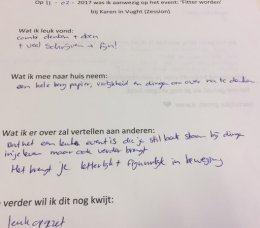 Op 11 - 02 - 2017 was ik aanwezig op het event: 'Fitter worden'
bij Karen in Vught (Zession).
Wat ik leuk vond:
combi denken + doen
+ veel schrijven → fijn!
Wat ik mee naar huis neem:
een hele berg papier, vrolijkheid en dingen om over na te denken
Wat ik er over zal vertellen aan anderen:
Dat het een leuk event is die je stil laat staan bij dingen
in je leven maar ook verder brengt
Het brengt je letterlijk + figuurlijk in beweging
verder wil ik dit nog kwijt:
leuk opzet